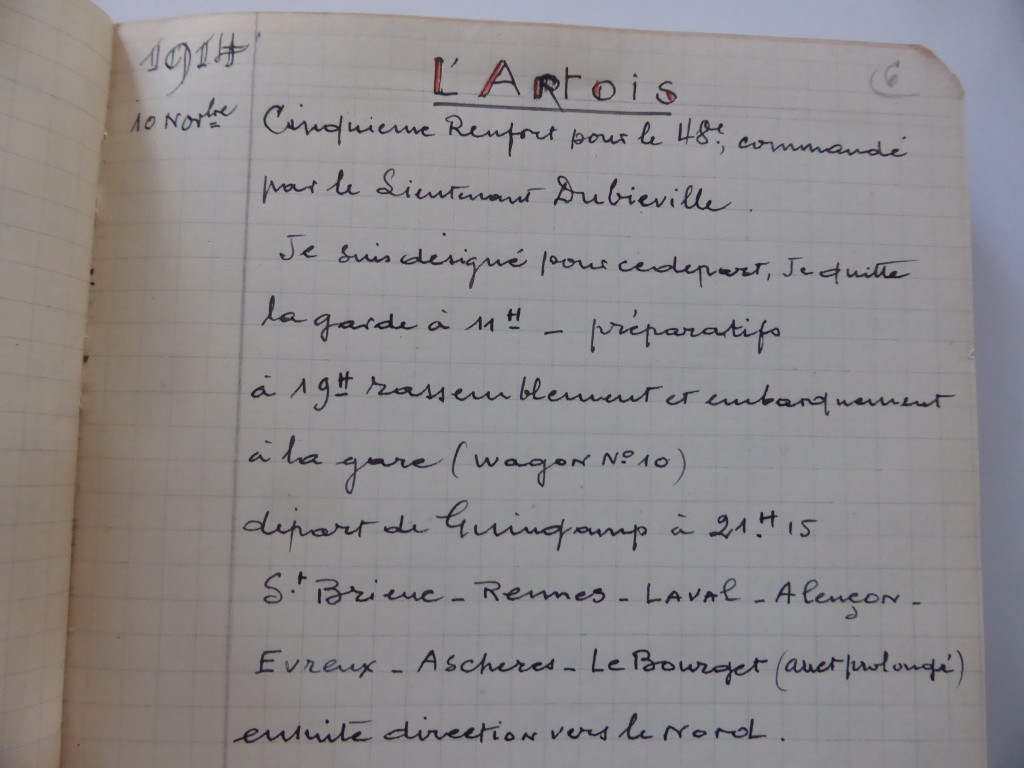 1914
L'ARTOIS
6
10 Novbre
Cinquieme Renfort pour le 48e, commandé
par le Lieutenant Dubieville.
Je suis désigné pour ce depart, Je quitte
la garde à 11H - préparatifs
à 19H rassemblement et embarquement
à la gare (wagon No 10)
départ de Guingamp à 21H.15
St Brieuc - Rennes - LAVAL - Alençon -
Evreux - Ascheres - Le Bourget (arret prolongé)
ensuite direction vers le Nord.